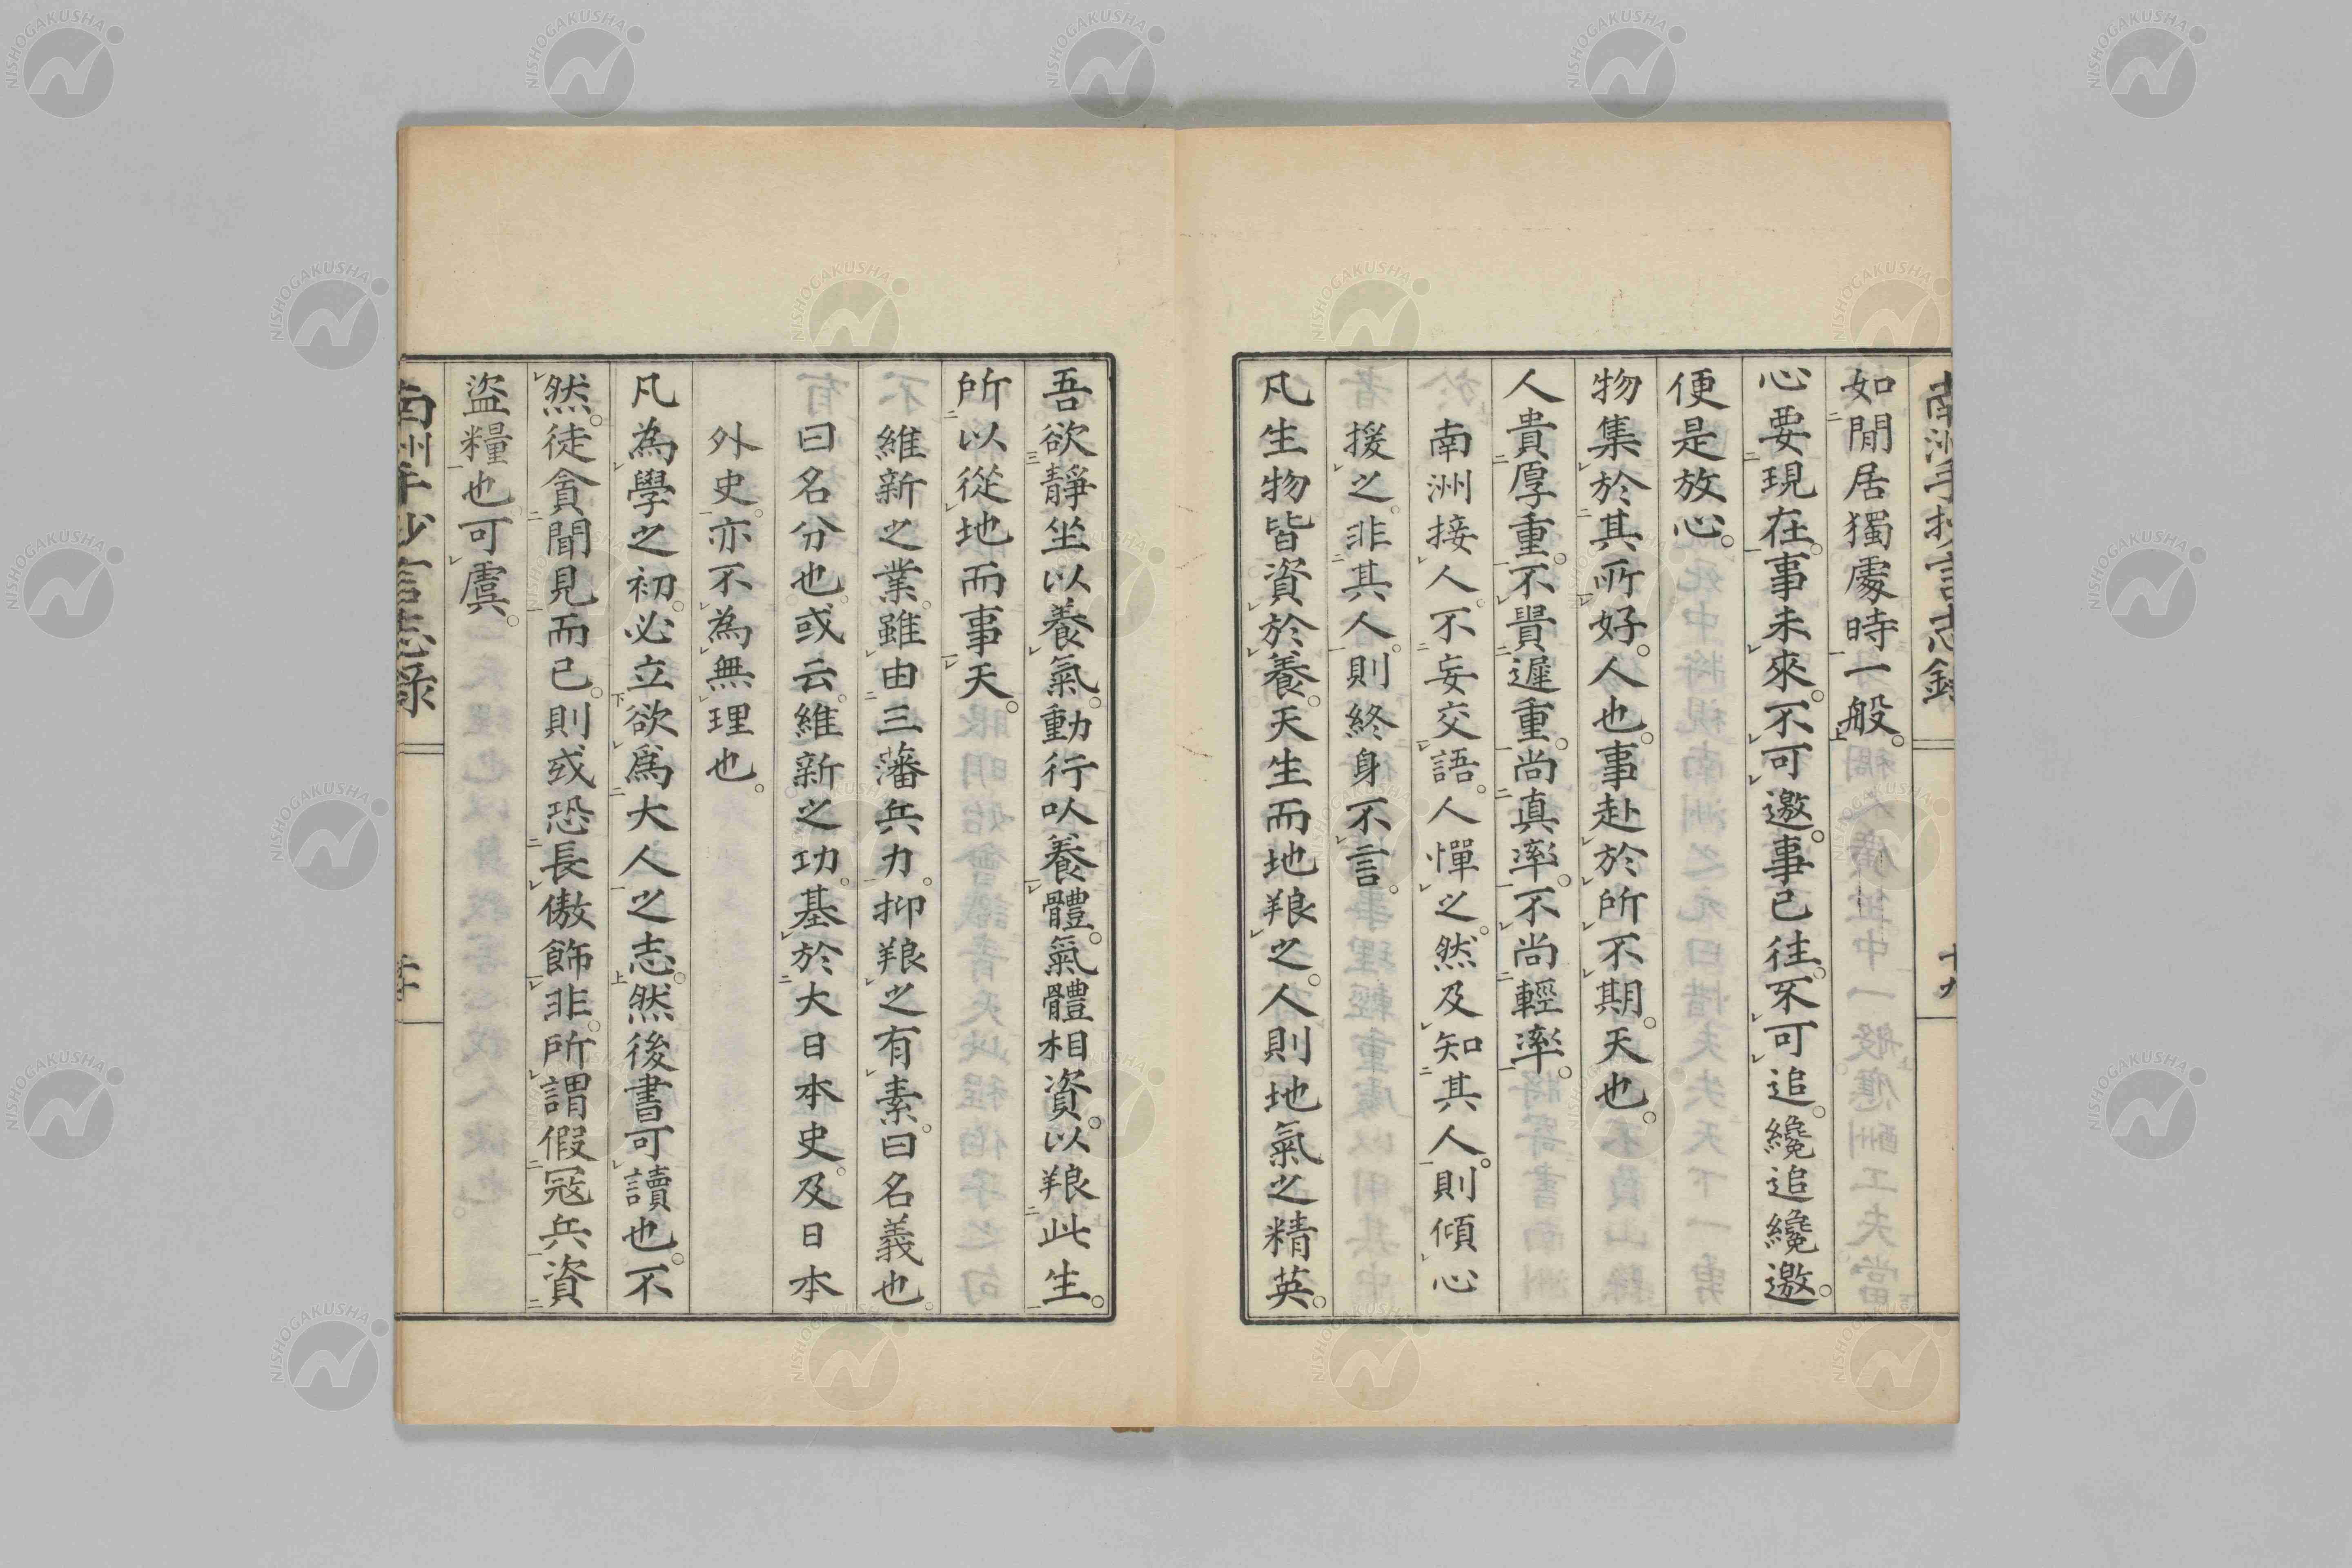 如閒居獨處時一般。
心要現在。事未來。不可邀。事已往。不可追。纔追纔邀。
便是放心。
物集於其所好。人也。事赴於所不期。天也。
人貴厚重。不貴遲重。尚真率。不尚輕率。
南洲接人不妄交語。人憚之。然及知其人。則傾心
援之。非其人。則終身不言。
凡生物皆資於養。天生而地䬶之。人則地氣之精英。
吾欲靜坐以養氣。動行以養體。氣體相資。以䬶此生。
所以從地而事天。
維新之業。雖由三藩兵力。抑䬶之有素。曰名義也。
曰名分也。或云。維新之功。基於大日本史。及日本
外史。亦不為無理也。
凡為學之初。必立欲爲大人之志。然後書可讀也。不
然。徒貪聞見而已。則或恐長傲飾非。所謂假寇兵資
盜糧也可虞。
南洲手抄言志錄
二十
南洲手抄言志錄
十九
NISHOGAKUSHA